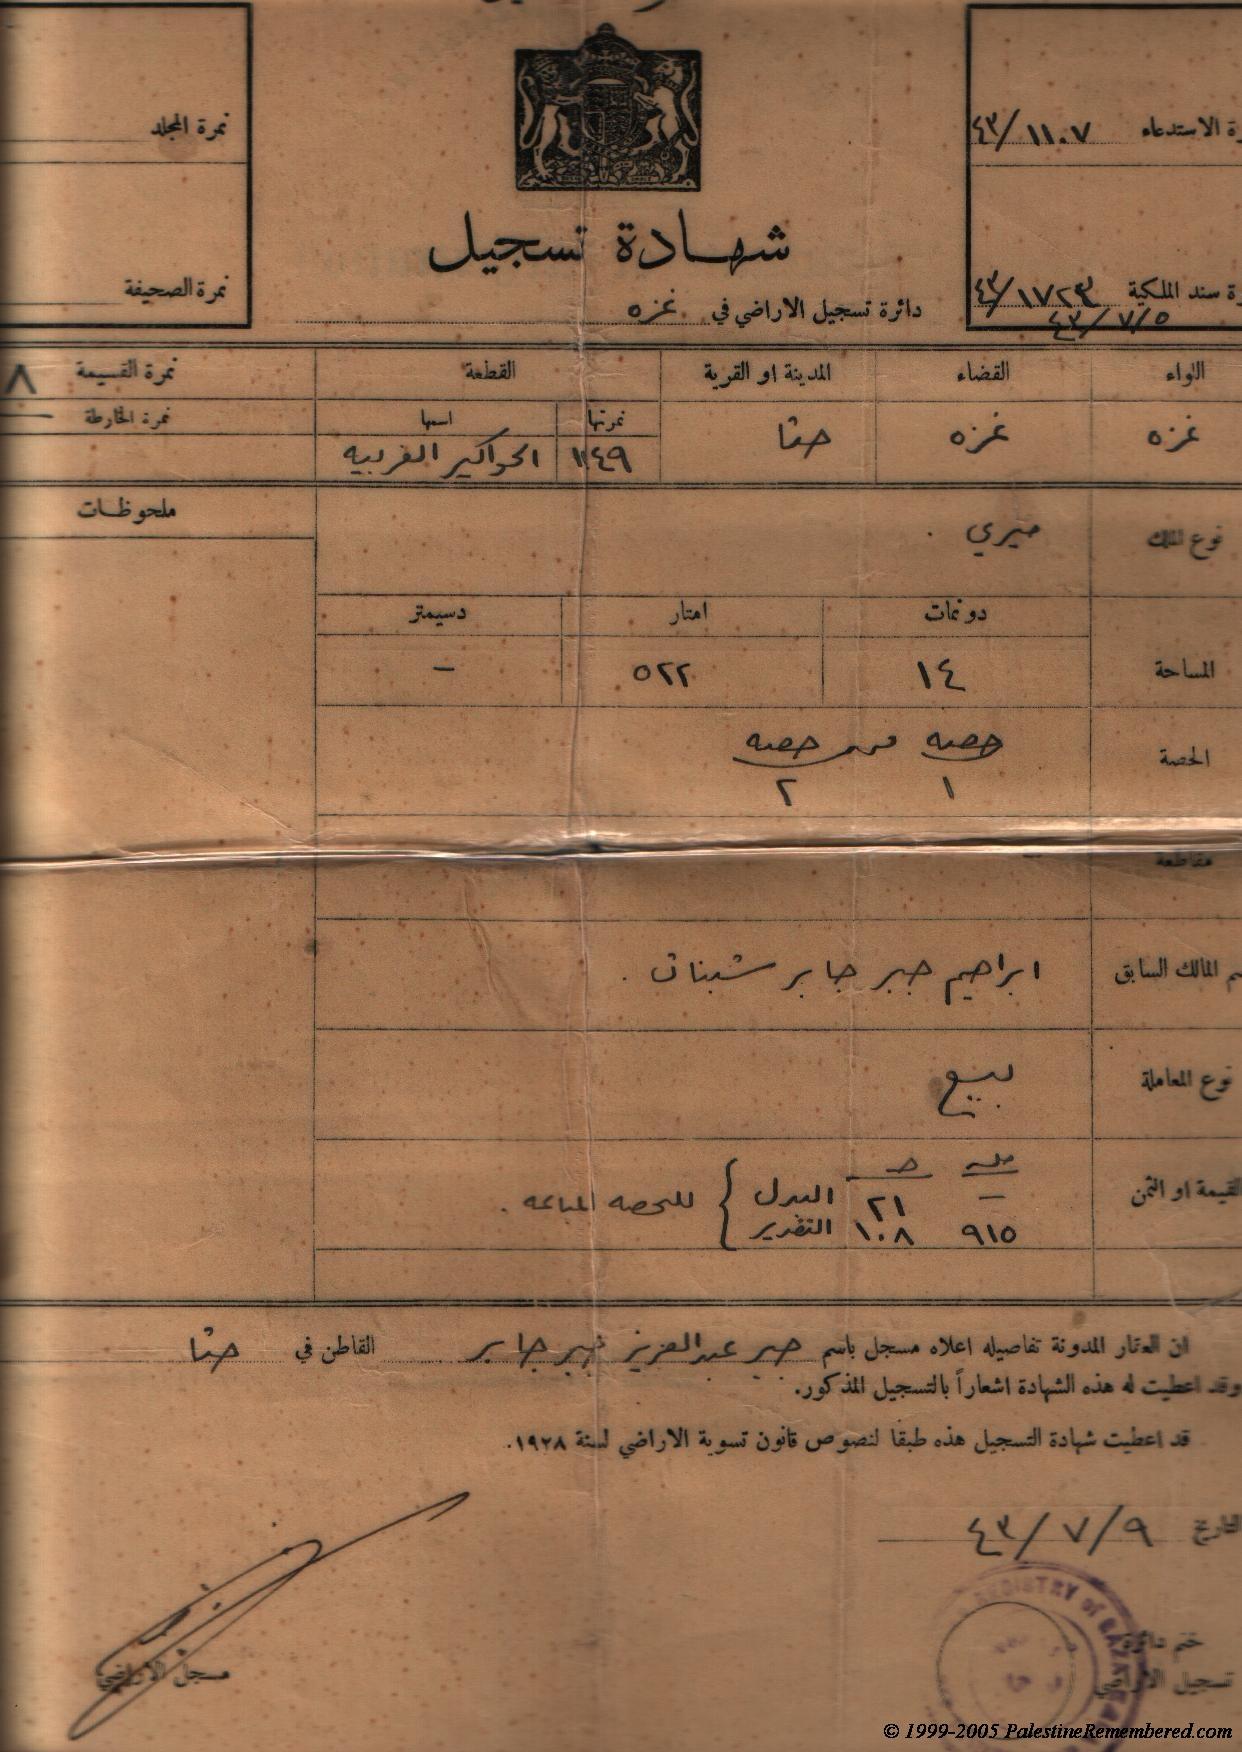 نمرة المجلد
الاستدعاء ١١٠٧/٤٣
شهادة تسجيل
نمرة الصحيفة
سند الملكية ١٧٢٣/٤٣
٥/٧/٤٣
دائرة تسجيل الاراضي في غزه
الواء القضاء المدينة او القرية القطعة نمرة القسيمة ٨
نمرتها اسمها نمرة الخارطة
غزه غزه حتا ١١٤٩ الحواكير الغربيه
ملحوظات
نوع الملك ميري.
دونمات امتار دسيمتر
المساحة ١٤ ٥٢٢ -
الحصة حصه من حصه
١ ٢
مقاطعة
المالك السابق ابراهيم جبر جابر شبنات.
نوع المعاملة بيع
القيمة او الثمن
- ٢١ البدل } للحصه المباعه.
٩١٥ ١٠٨ التقدير
ان العقار المدونة تفاصيله اعلاه مسجل باسم جبر عبدالعزيز جبر جابر القاطن في حتا
وقد اعطيت له هذه الشهادة اشعاراً بالتسجيل المذكور.
قد اعطيت شهادة التسجيل هذه طبقا لنصوص قانون تسوية الاراضي لسنة ١٩٢٨.
التاريخ ٩/٧/٤٣
REGISTRY of GAZA
ختم دائرة
تسجيل الاراضي
مسجل الاراضي
© 1999-2005 PalestineRemembered.com